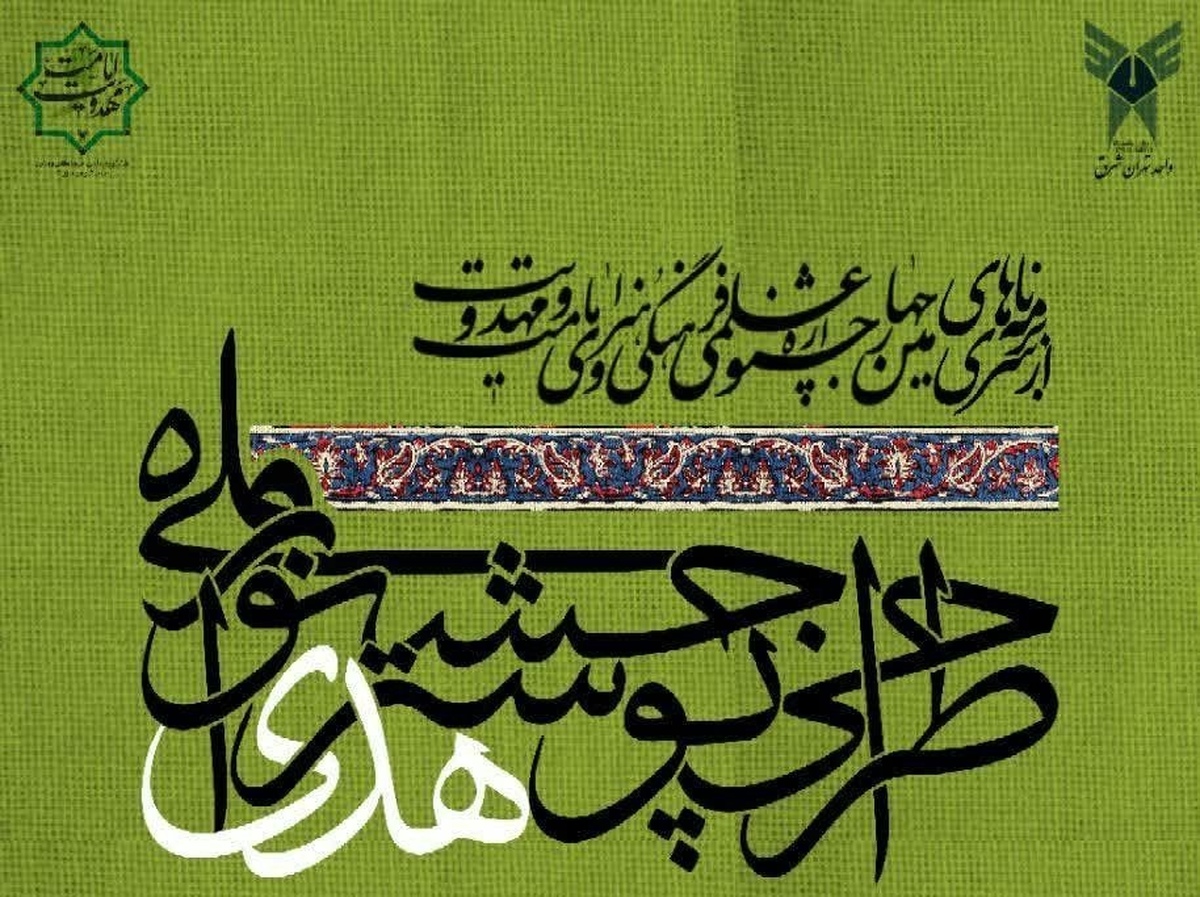 امامت
مهدویت
واحد تهران شرق
از سری برنامه‌های
چهارمین جشنواره علمی فرهنگی هنری امامت و مهدویت
جشنواره ملی
طراحی پوستر
هدی